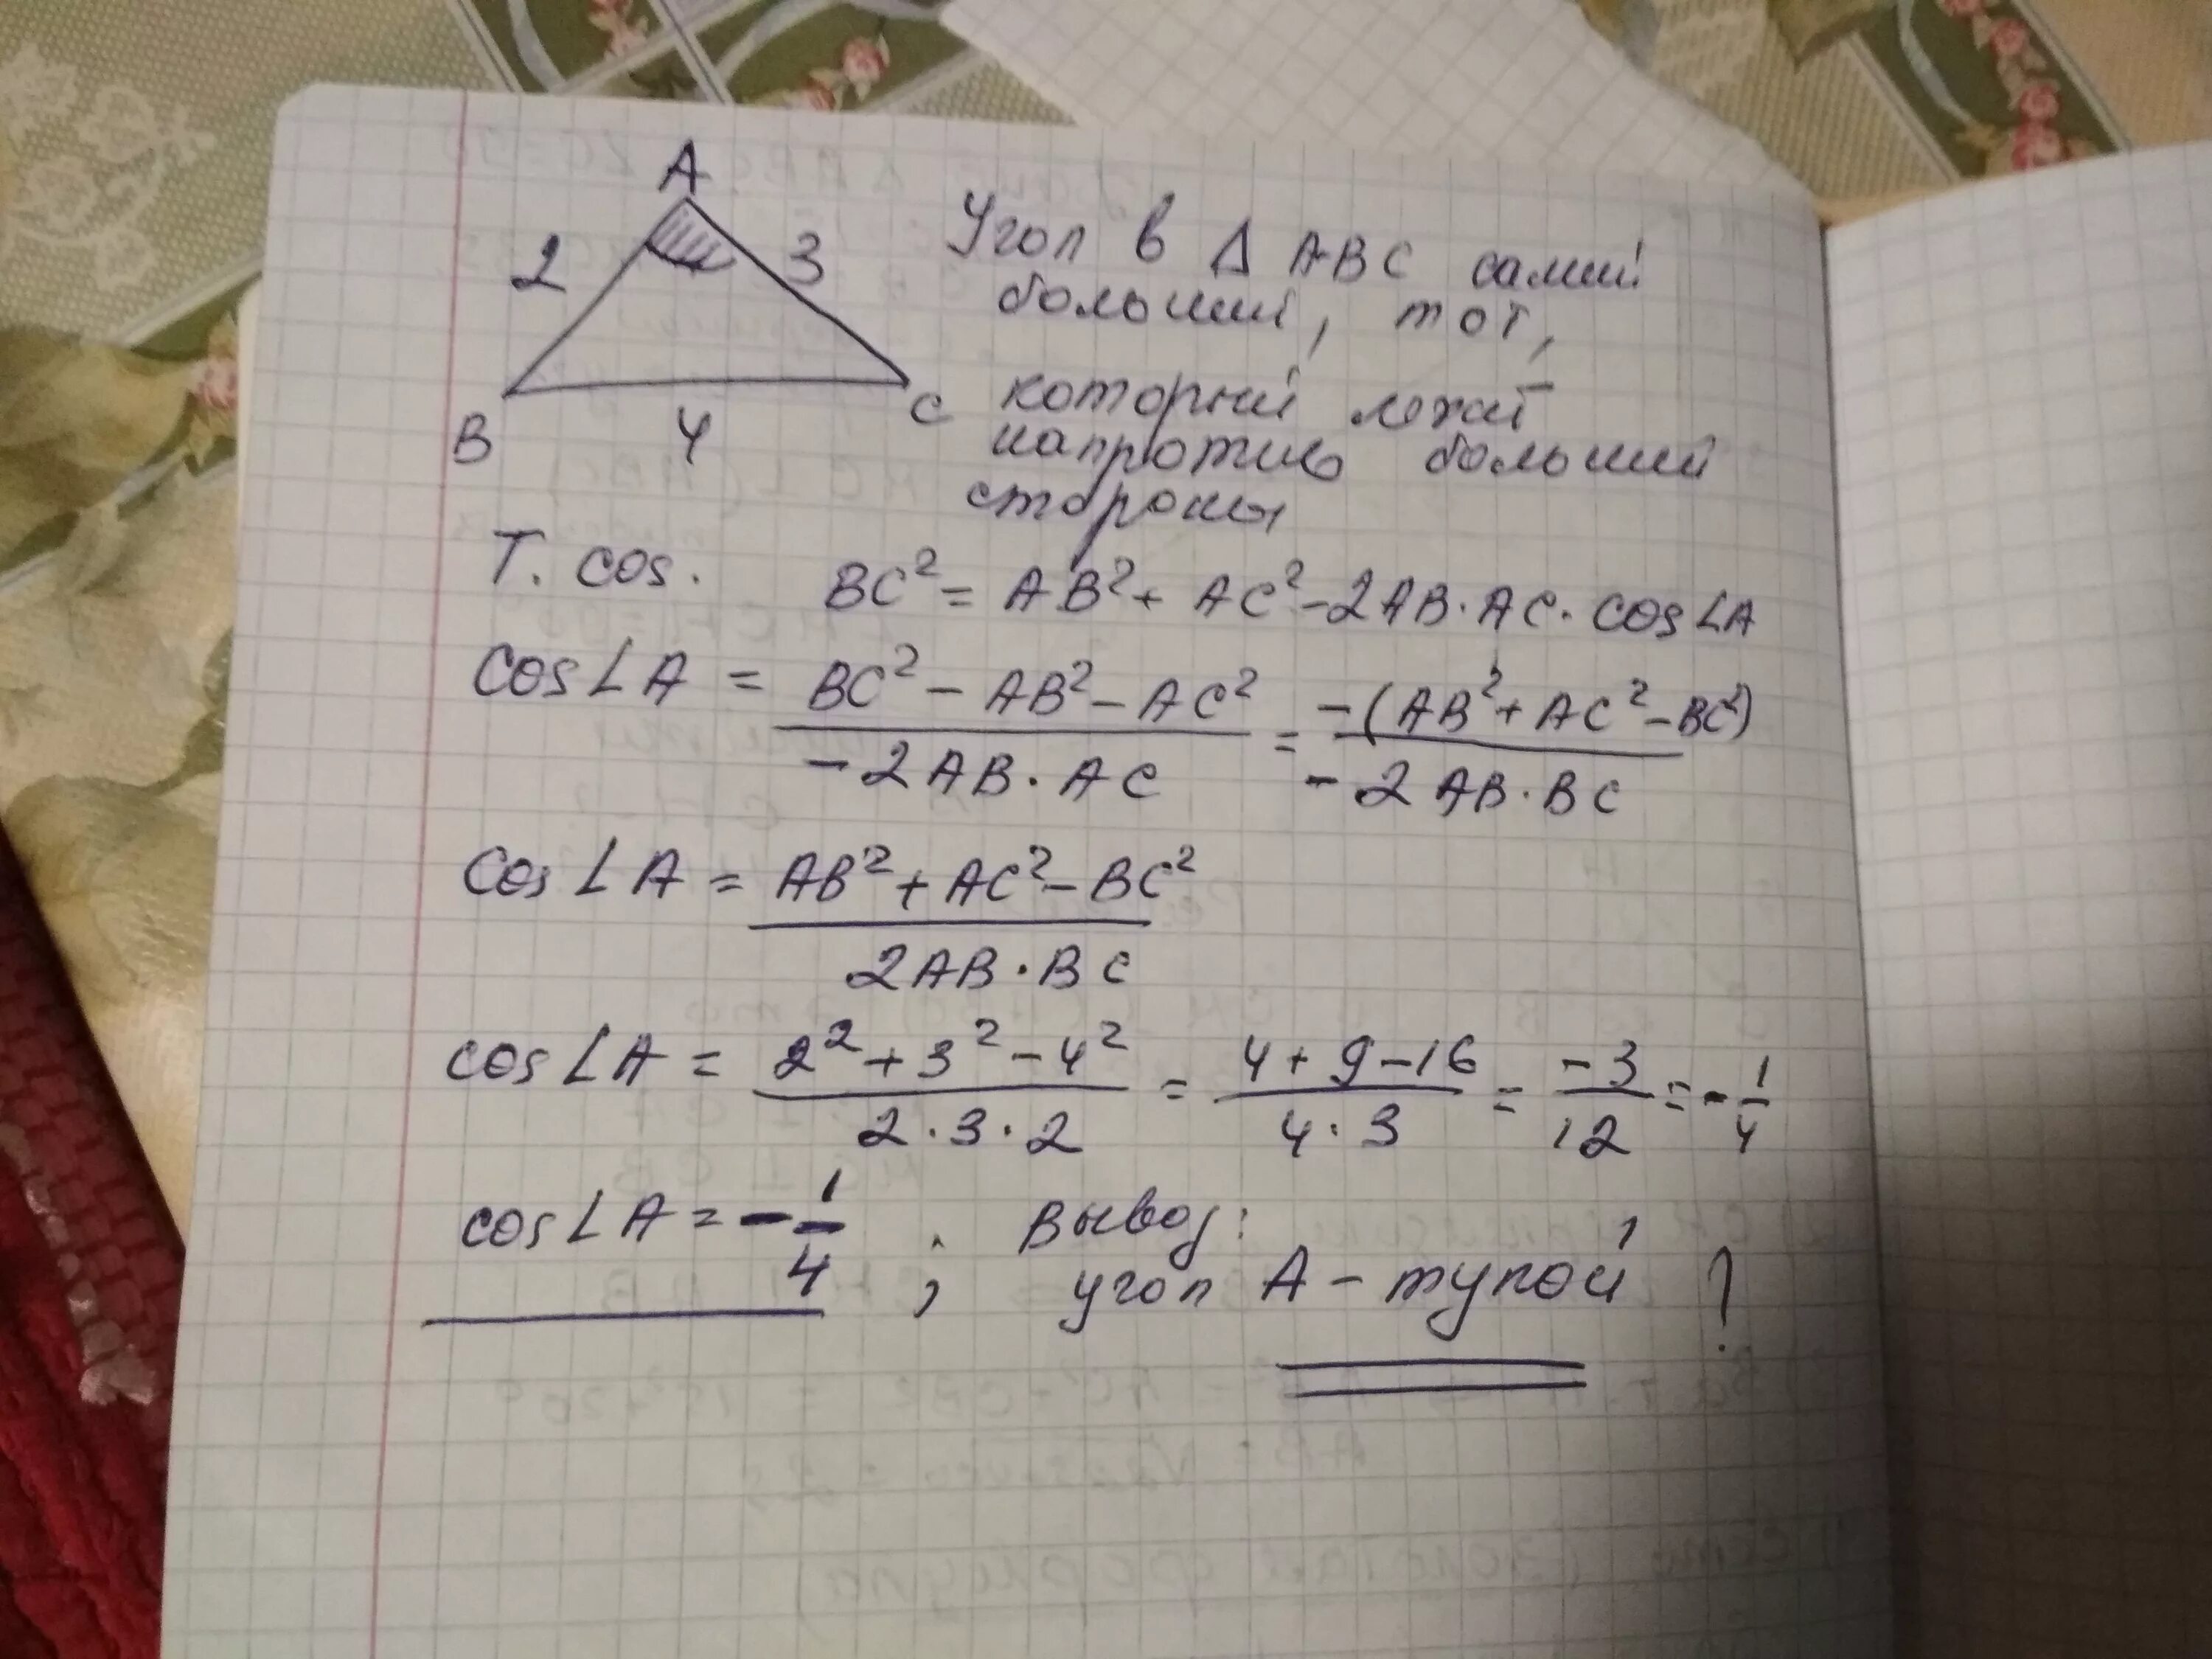 A
2
3
B
4
C
Угол в Δ ABC самый
больший, тот,
который лежит
напротив большей
стороны
Т. cos. BC² = AB² + AC² - 2AB · AC · cos∠A
cos∠A = (BC² - AB² - AC²)/(-2AB · AC) = (-(AB² + AC² - BC²))/(-2AB · BC)
cos∠A = (AB² + AC² - BC²)/(2AB · BC)
cos∠A = (2² + 3² - 4²)/(2 · 3 · 2) = (4 + 9 - 16)/(4 · 3) = (-3)/12 = -1/4
cos∠A = -1/4 ; Вывод:
угол A - тупой !